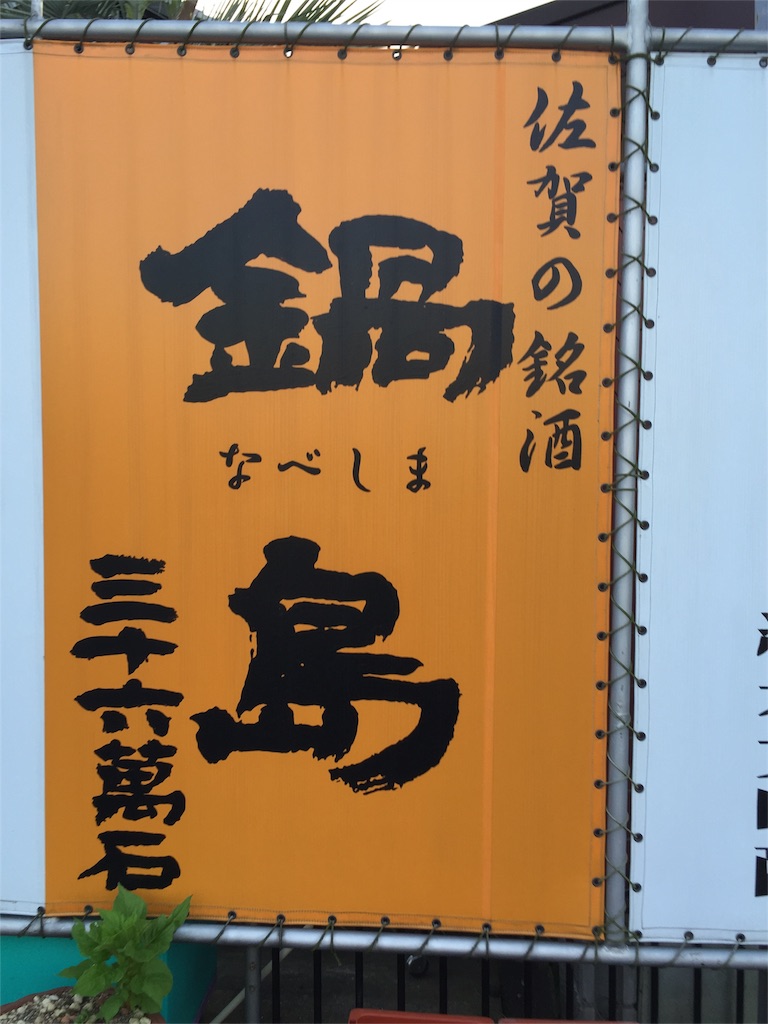 佐賀の銘酒
鍋島
なべしま
三十六萬石